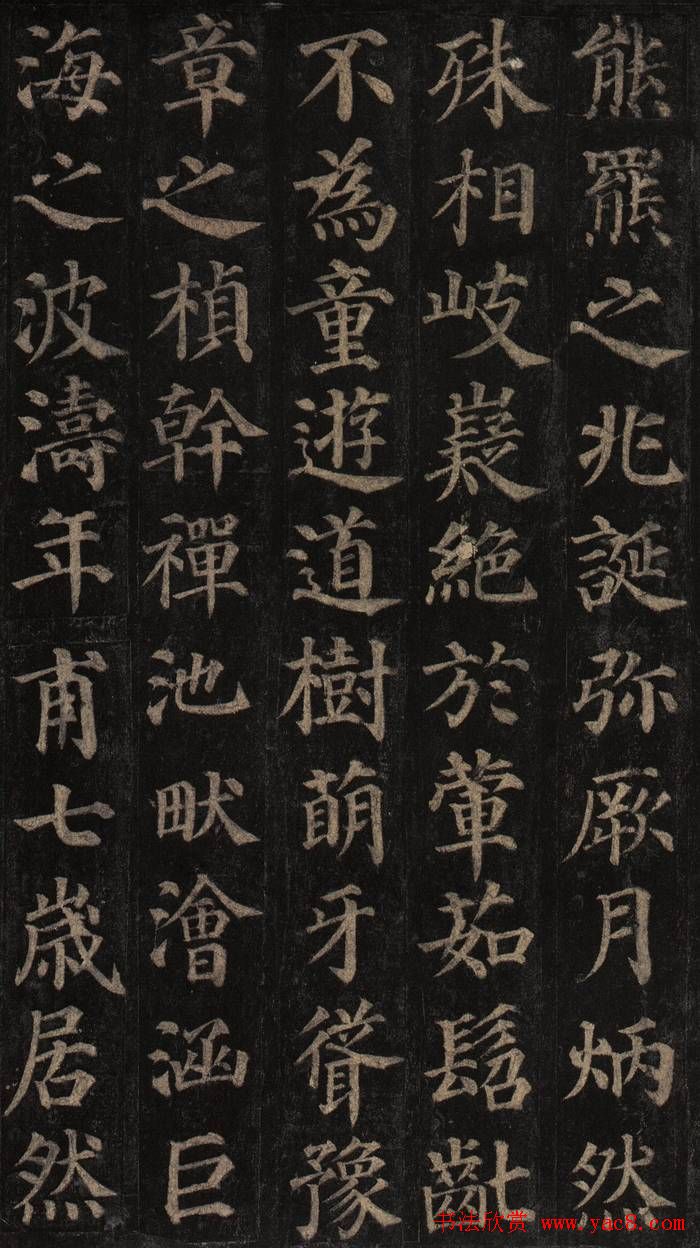 熊羆之兆誕弥厥月炳然
殊相岐嶷絶於葷茹髫齔
不為童遊道樹萌牙聳豫
章之楨幹禪池畎澮涵巨
海之波濤年甫七歳居然
书法欣赏 www.yac8.com